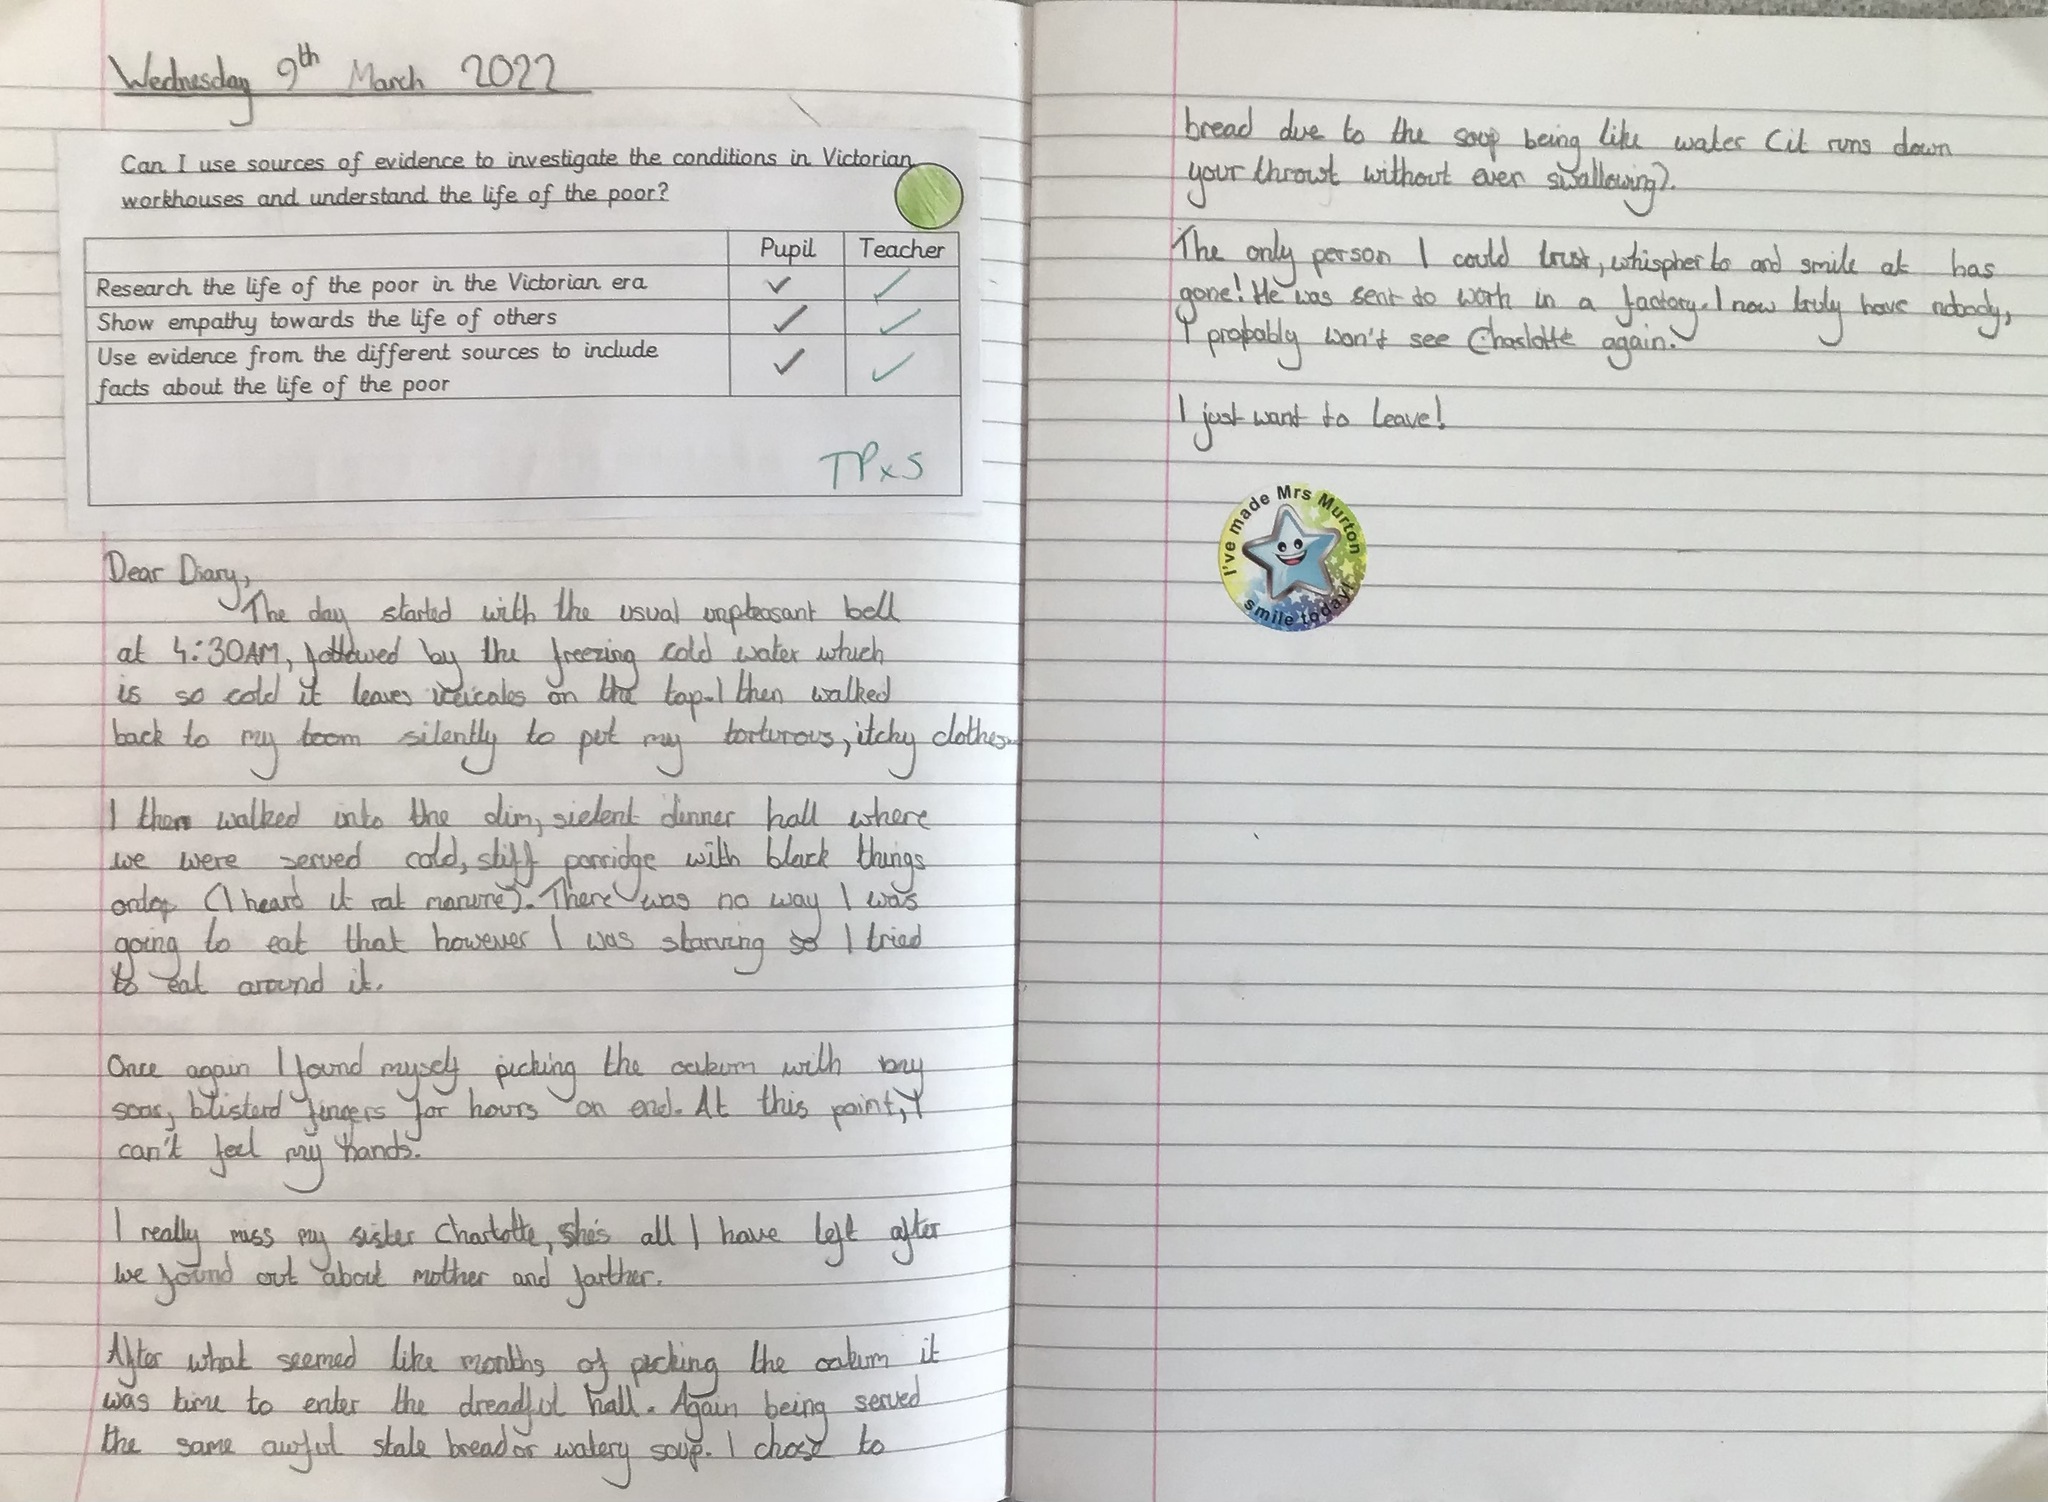 Wednesday 9th March 2022
Can I use sources of evidence to investigate the conditions in Victorian
workhouses and understand the life of the poor?
Pupil Teacher
Research the life of the poor in the Victorian era ✓ ✓
Show empathy towards the life of others ✓ ✓
Use evidence from the different sources to include
facts about the life of the poor ✓ ✓
TPx5
Dear Diary,
The day started with the usual unpleasant bell
at 4:30AM, followed by the freezing cold water which
is so cold it leaves on the tap. I then walked
back to my room silently to put my torturous, itchy clothes.
I then walked into the dim, sielent dinner hall where
we were served cold, stiff porridge with black things
ontop (I heard it rat manure). There was no way I was
going to eat that however I was starving so I tried
to eat around it.
Once again I found myself picking the oakum with my
soar, blisterd fingers for hours on end. At this point, I
can't feel my hands.
I really miss my sister Charlotte, she's all I have left after
we found out about mother and farther.
After what seemed like months of picking the oakum it
was time to enter the dreadful hall. Again being served
the same awful stale bread or watery soup. I chose to
bread due to the soup being like water (it runs down
your throut without even swallowing).
The only person I could trust, whispher to and smile at has
gone! He was sent to work in a factory. I now truly have nobody,
I propably won't see Charlotte again.
I just want to leave!
I've made Mrs Murton
smile today!